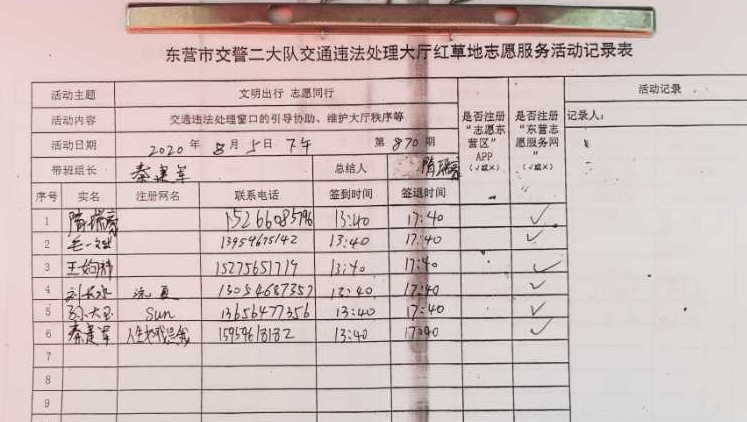 东营市交警二大队交通违法处理大厅红草地志愿服务活动记录表
活动主题 文明出行 志愿同行 活动记录
活动内容 交通违法处理窗口的引导协助、维护大厅秩序等 是否注册“志愿东营区”APP(√或×) 是否注册“东营志愿服务网”(√或×) 记录人:
活动日期 2020 年 8 月 5 日 下午 第 870 期
带班组长 秦建军 总结人 隋瑞
序号 实名 注册网名 联系电话 签到时间 签退时间
1 隋瑞 15266085796 13:40 17:40 √
2 毛一 13954675142 13:40 17:40 √
3 王 15275651719 13:40 17:40 √
4 刘 13054687357 13:40 17:40 √
5 孙大 Sun 13656477356 13:40 17:40 √
6 秦建军 人生 15959618182 13:40 17:40 √
7
8
9